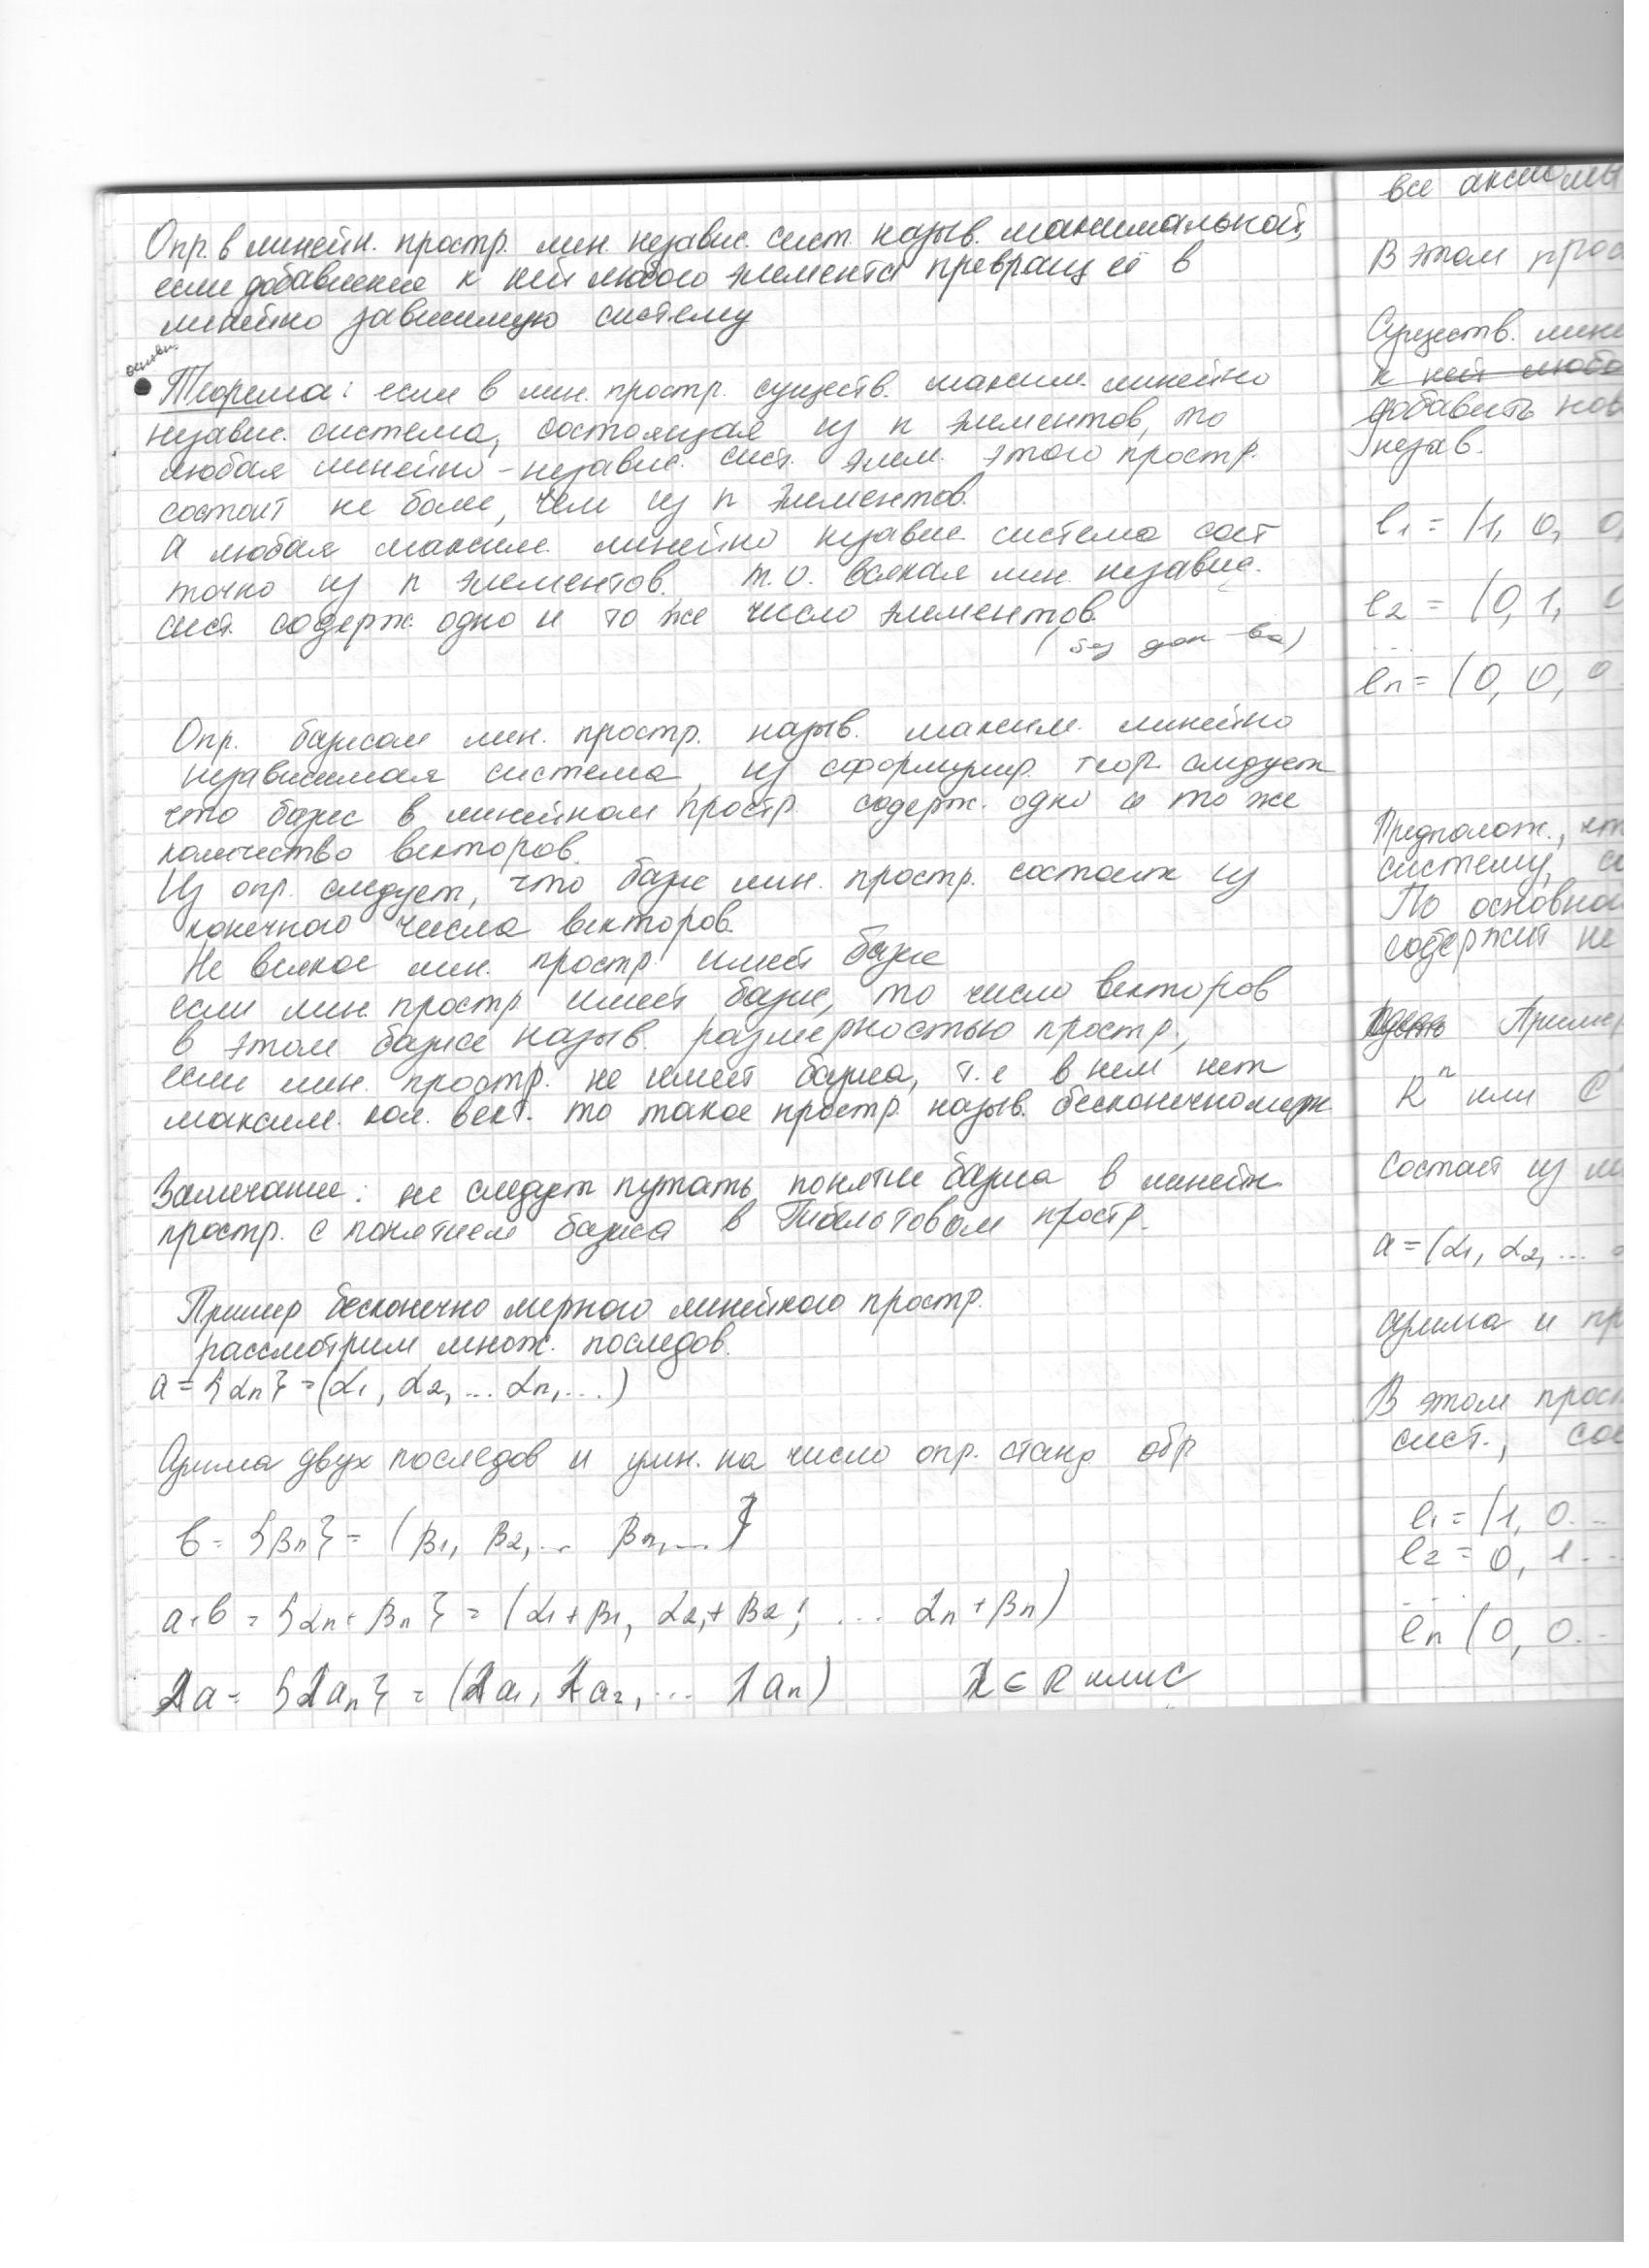 Опр. в линейн. простр. лин. независ. сист. назыв. максимальной,
если добавление к ней любого элемента превращ её в
линейно зависимую систему
основн.
Теорема: если в лин. простр. существ. максим. линейно
независ. система, состоящая из n элементов, то
любая линейно-независ. сист. элем. этого простр.
состоит не более, чем из n элементов.
А любая максим. линейно независ. система сост
точно из n элементов. т.о. всякая лин. независ.
сист. содерж. одно и то же число элементов.
(без док-ва)
Опр. базисом лин. простр. назыв. максим. линейно
независимая система, из сформулир. теор. следует
что базис в линейном простр. содерж. одно и то же
количество векторов.
Из опр. следует, что базис лин. простр. состоит из
конечного числа векторов.
Не всякое лин. простр. имеет базис
если лин. простр. имеет базис, то число векторов
в этом базисе назыв. размерностью простр.,
если лин. простр. не имеет базиса, т.е в нем нет
максим. кол. вект. то такое простр. назыв. бесконечномерн
Замечание: не следует путать понятие базиса в линейн.
простр. с понятием базиса в Гильбертовом простр.
Пример бесконечно мерного линейного простр.
рассмотрим множ. последов.
a = {αn} = (α1, α2, ... αn, ...)
Сумма двух последов и умн. на число опр. станд обр
b = {βn} = (β1, β2, ... βn, ...}
a+b = {αn + βn} = (α1 + β1, α2 + β2, ... αn + βn)
λa = {λan} = (λa1, λa2, ... λan) λ ∈ R или C
все аксиомы
В этом прос
Существ. лине
к ней любо
добавить нов
незав.
e1 = (1, 0, 0,
e2 = (0, 1, 0
...
en = (0, 0, 0
Предполож., чт
систему, с
По основной
содержит не
Пусть Пример
R^n или C
состоит из
a = (α1, α2, ...
сумма и пр
В этом прост
сист., сос
e1 = (1, 0...
e2 = 0, 1...
....
en (0, 0...